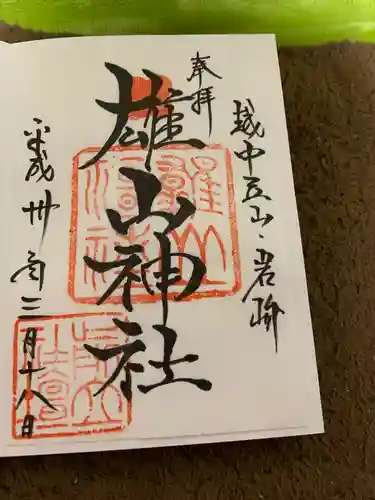 奉拝
越中立山・岩峅
雄山神社
平成卅一年三月十八日